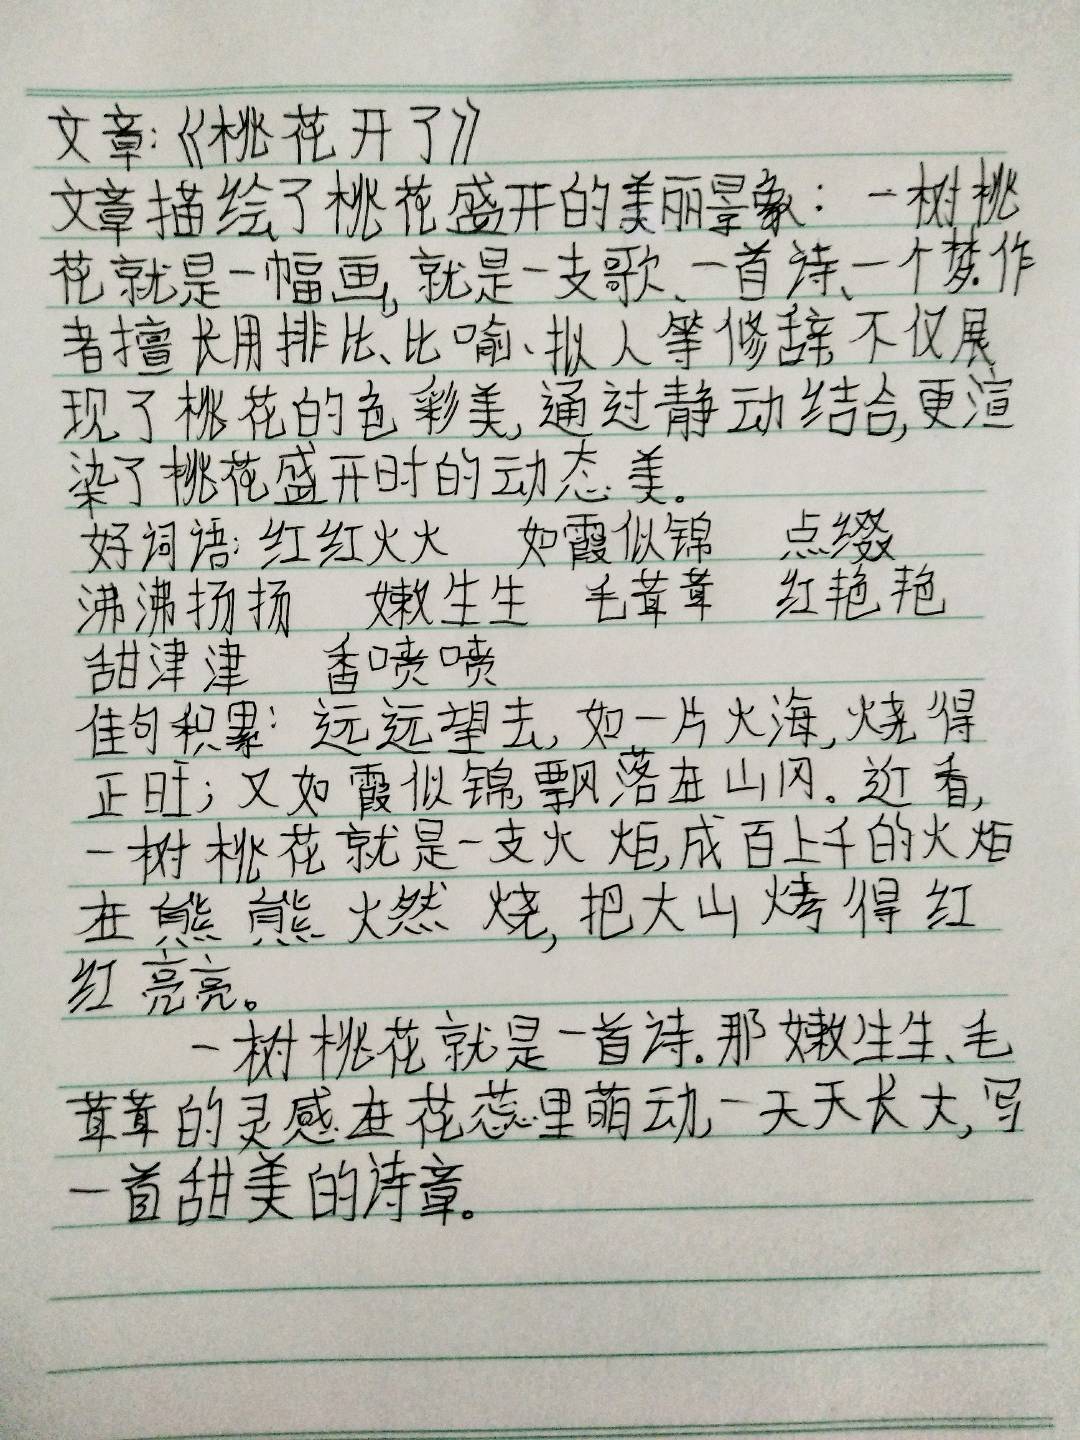 文章:《桃花开了》
文章描绘了桃花盛开的美丽景象：一树桃
花就是一幅画,就是一支歌、一首诗、一个梦.作
者擅长用排比、比喻、拟人等修辞,不仅展
现了桃花的色彩美,通过静动结合,更渲
染了桃花盛开时的动态美。
好词语:红红火火 如霞似锦 点缀
沸沸扬扬 嫩生生 毛茸茸 红艳艳
甜津津 香喷喷
佳句积累:远远望去,如一片火海,烧得
正旺;又如霞似锦,飘落在山冈。近看,
一树桃花就是一支火炬,成百上千的火炬
在熊熊燃烧,把大山烤得红
红亮亮。
一树桃花就是一首诗.那嫩生生、毛
茸茸的灵感在花蕊里萌动,一天天长大,写
一首甜美的诗章。